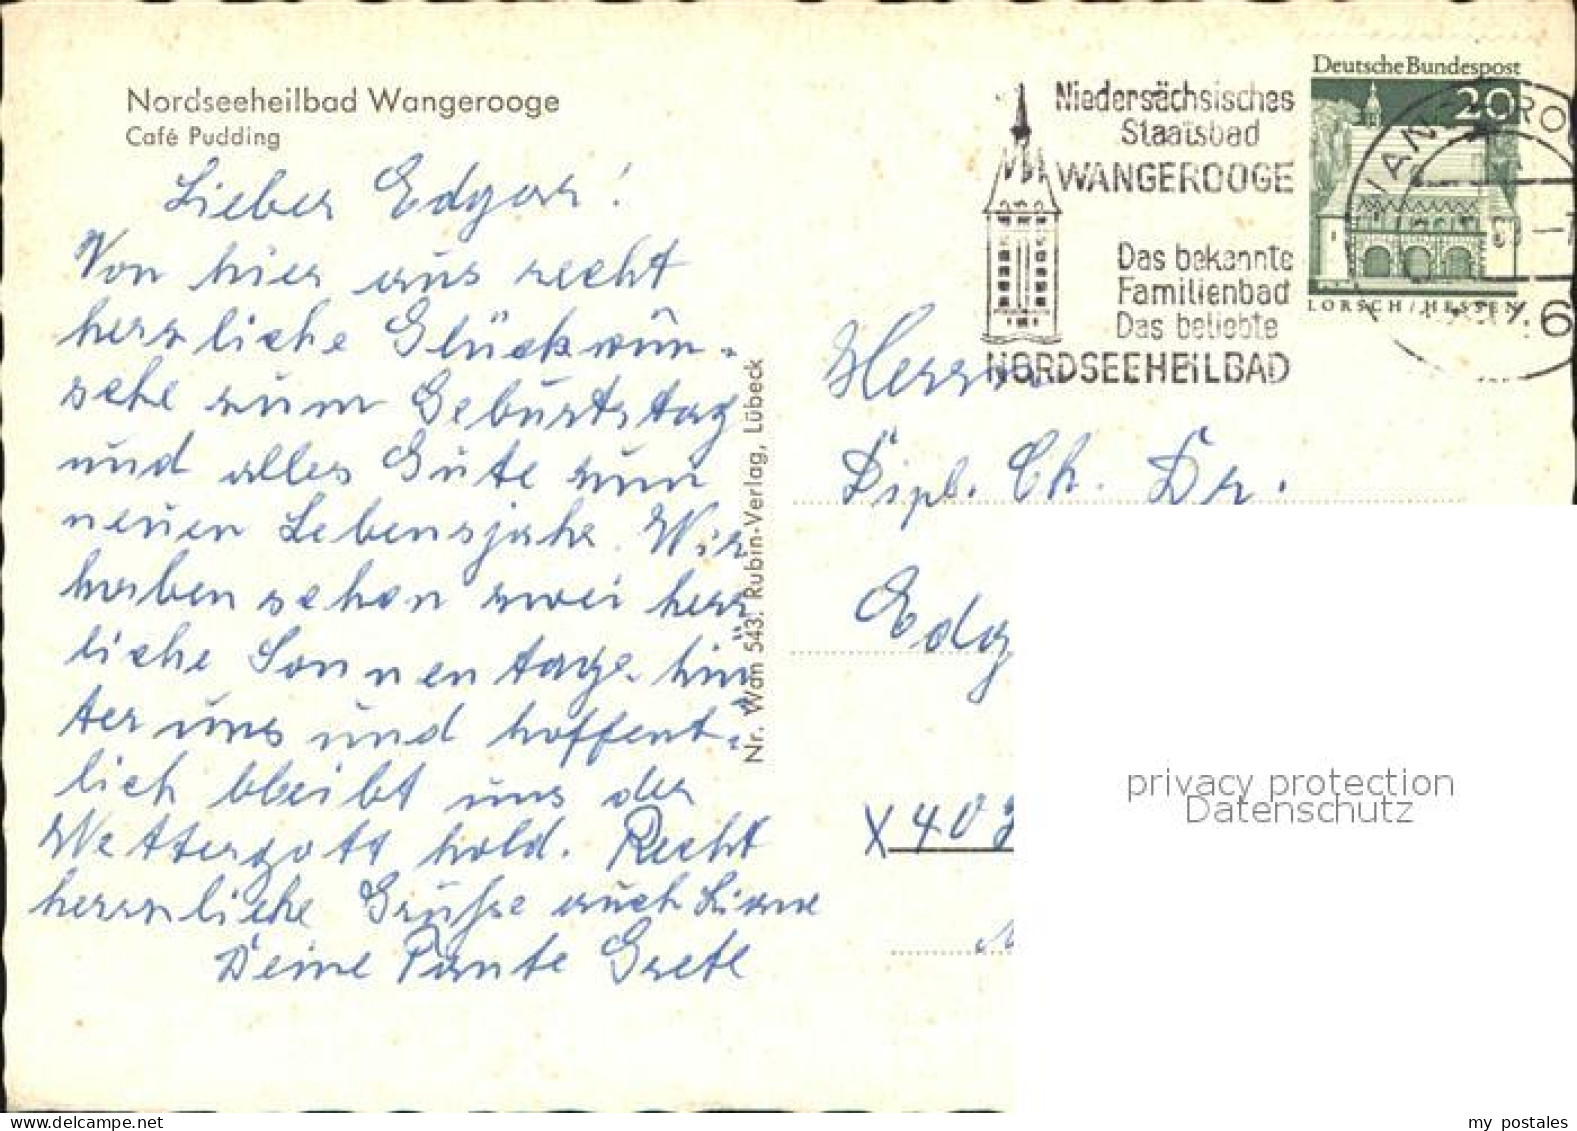 Nordseeheilbad Wangerooge
Café Pudding
Lieber Edgar!
Von hier aus recht
herzliche Glückwün-
sche zum Geburtstag
und alles Gute zum
neuen Lebensjahr. Wir
haben schon zwei herr
liche Sonnentage hin
ter uns und hoffent-
lich bleibt uns der
Wettergott hold. Recht
herzliche Grüße auch Liane
Deine Tante Grete
Nr. Wan 543. Rubin-Verlag, Lübeck
Niedersächsisches
Staatsbad
WANGEROOGE
Das bekannte
Familienbad
Das beliebte
NORDSEEHEILBAD
Deutsche Bundespost
20
LORSCH/HESSEN
Herrn
Dipl. Ch. Dr.
Edg
X 403
privacy protection
Datenschutz
my postales
delcampe.net